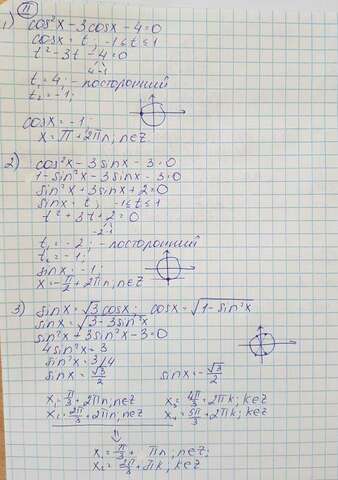 II
1) cos²x - 3cosx - 4 = 0
cosx = t; -1 ≤ t ≤ 1
t² - 3t - 4 = 0
4 -1
t₁ = 4; - посторонний
t₂ = -1;
cosx = -1;
x = π + 2πn, n∈Z
2) cos²x - 3sinx - 3 = 0
1 - sin²x - 3sinx - 3 = 0
sin²x + 3sinx + 2 = 0
sinx = t; -1 ≤ t ≤ 1
t² + 3t + 2 = 0
-2 -1
t₁ = -2; - посторонний
t₂ = -1;
sinx = -1;
x = -π/2 + 2πn, n∈Z
3) sinx = √3 cosx; cosx = √1 - sin²x
sinx = √3 - 3sin²x
sin²x + 3sin²x - 3 = 0
4sin²x = 3
sin²x = 3/4
sinx = √3/2 sinx = -√3/2
x₁ = π/3 + 2πn, n∈Z x₃ = 4π/3 + 2πk; k∈Z
x₂ = 2π/3 + 2πn, n∈Z x₄ = 5π/3 + 2πk; k∈Z
⇓
x₁ = π/3 + πn; n∈Z;
x₂ = 2π/3 + πk, k∈Z